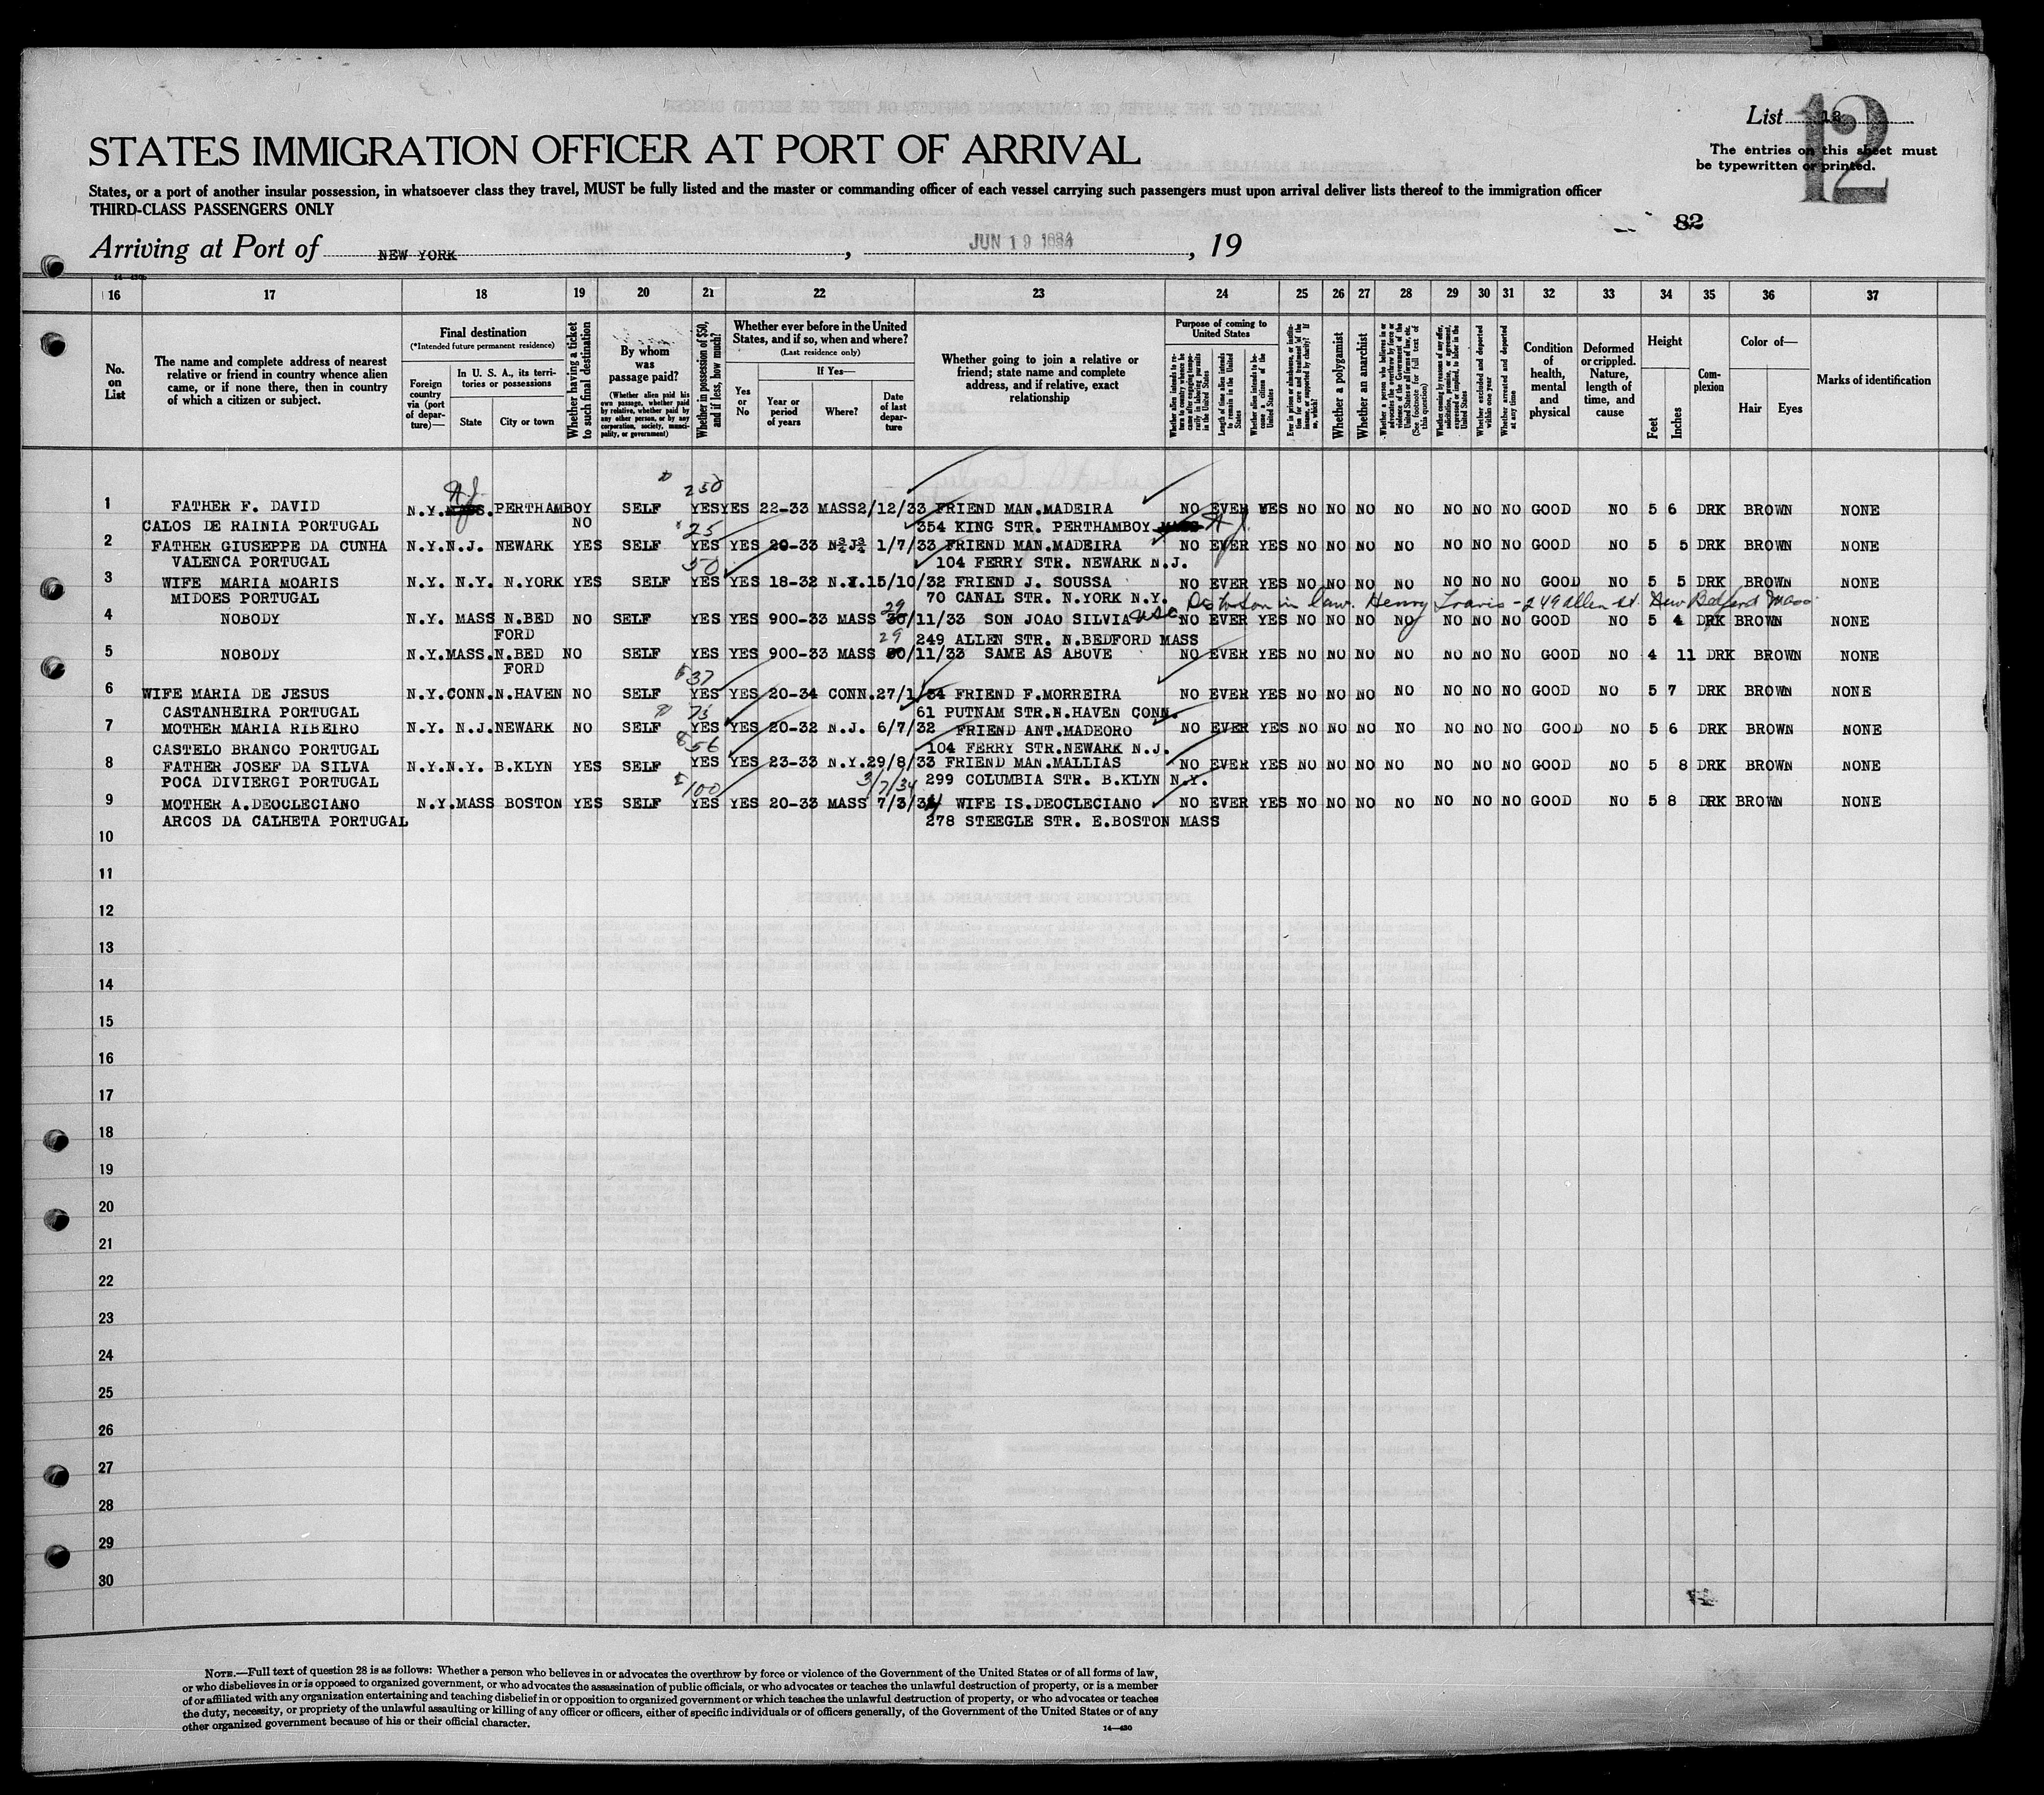 List 12
12
The entries on this sheet must
be typewritten or printed.
STATES IMMIGRATION OFFICER AT PORT OF ARRIVAL
States, or a port of another insular possession, in whatsoever class they travel, MUST be fully listed and the master or commanding officer of each vessel carrying such passengers must upon arrival deliver lists thereof to the immigration officer
THIRD-CLASS PASSENGERS ONLY
82
Arriving at Port of NEW YORK, JUN 19 1934, 19
16 17 18 19 20 21 22 23 24 25 26 27 28 29 30 31 32 33 34 35 36 37
No. on List
The name and complete address of nearest relative or friend in country whence alien came, or if none there, then in country of which a citizen or subject.
Final destination
(*Intended future permanent residence)
Foreign country via (port of departure)—
In U. S. A., its territories or possessions
State
City or town
Whether having a ticket to such final destination
By whom was passage paid?
(Whether alien paid his own passage, whether paid by relative, whether paid by any other person, or by any corporation, society, municipality, or government)
Whether in possession of $50, and if less, how much?
Whether ever before in the United States, and if so, when and where?
(Last residence only)
Yes or No
If Yes—
Year or period of years
Where?
Date of last departure
Whether going to join a relative or friend; state name and complete address, and if relative, exact relationship
Purpose of coming to United States
Whether alien intends to return to country whence he came after engaging temporarily in laboring pursuits in the United States
Length of time alien intends to remain in the United States
Whether alien intends to become a citizen of the United States
Ever in prison or almshouse, or institution for care and treatment of the insane, or supported by charity? If so, which?
Whether a polygamist
Whether an anarchist
Whether a person who believes in or advocates the overthrow by force or violence of the Government of the United States or all forms of law, etc. (See footnote for full text of this question)
Whether coming by reasons of any offer, solicitation, promise, or agreement, expressed or implied, to labor in the United States
Whether excluded and deported within one year
Whether arrested and deported at any time
Condition of health, mental and physical
Deformed or crippled. Nature, length of time, and cause
Height
Feet
Inches
Complexion
Color of—
Hair
Eyes
Marks of identification
N.J. 250
1 FATHER F. DAVID N.Y. PERTHAMBOY SELF YES YES 22-33 MASS 2/12/33 FRIEND MAN.MADEIRA NO EVER YES NO NO NO NO NO NO NO GOOD NO 5 6 DRK BROWN NONE
CALOS DE RAINIA PORTUGAL NO 25 354 KING STR. PERTHAMBOY N.J.
2 FATHER GIUSEPPE DA CUNHA N.Y. N.J. NEWARK YES SELF YES YES 20-33 N.J. 1/7/33 FRIEND MAN.MADEIRA NO EVER YES NO NO NO NO NO NO NO GOOD NO 5 5 DRK BROWN NONE
VALENCA PORTUGAL 50 104 FERRY STR. NEWARK N.J.
3 WIFE MARIA MOARIS N.Y. N.Y. N.YORK YES SELF YES YES 18-32 N.Y. 15/10/32 FRIEND J. SOUSSA NO EVER YES NO NO NO NO NO NO NO GOOD NO 5 5 DRK BROWN NONE
MIDOES PORTUGAL 70 CANAL STR. N.YORK N.Y.
29 son in law. Henry Travis - 249 Allen St. New Bedford Mass.
4 NOBODY N.Y. MASS N.BED NO SELF YES YES 900-33 MASS 30/11/33 SON JOAO SILVIA USC NO EVER YES NO NO NO NO NO NO NO GOOD NO 5 4 DRK BROWN NONE
FORD 29 249 ALLEN STR. N.BEDFORD MASS
5 NOBODY N.Y. MASS. N.BED NO SELF YES YES 900-33 MASS 30/11/33 SAME AS ABOVE NO EVER YES NO NO NO NO NO NO NO GOOD NO 4 11 DRK BROWN NONE
FORD $37
6 WIFE MARIA DE JESUS N.Y. CONN. N.HAVEN NO SELF YES YES 20-34 CONN. 27/1/34 FRIEND F.MORREIRA NO EVER YES NO NO NO NO NO NO NO GOOD NO 5 7 DRK BROWN NONE
CASTANHEIRA PORTUGAL 75 61 PUTNAM STR.N.HAVEN CONN.
7 MOTHER MARIA RIBEIRO N.Y. N.J. NEWARK NO SELF YES YES 20-32 N.J. 6/7/32 FRIEND ANT.MADEORO NO EVER YES NO NO NO NO NO NO NO GOOD NO 5 6 DRK BROWN NONE
CASTELO BRANCO PORTUGAL $56 104 FERRY STR.NEWARK N.J.
8 FATHER JOSEF DA SILVA N.Y. N.Y. B.KLYN YES SELF YES YES 23-33 N.Y. 29/8/33 FRIEND MAN.MALLIAS NO EVER YES NO NO NO NO NO NO NO GOOD NO 5 8 DRK BROWN NONE
POCA DIVIERGI PORTUGAL 100 3/7/34 299 COLUMBIA STR. B.KLYN N.Y.
9 MOTHER A.DEOCLECIANO N.Y. MASS BOSTON YES SELF YES YES 20-33 MASS 7/3/34 WIFE IS.DEOCLECIANO NO EVER YES NO NO NO NO NO NO NO GOOD NO 5 8 DRK BROWN NONE
ARCOS DA CALHETA PORTUGAL 278 STEEGLE STR. E.BOSTON MASS
10
11
12
13
14
15
16
17
18
19
20
21
22
23
24
25
26
27
28
29
30
NOTE.—Full text of question 28 is as follows: Whether a person who believes in or advocates the overthrow by force or violence of the Government of the United States or of all forms of law,
or who disbelieves in or is opposed to organized government, or who advocates the assassination of public officials, or who advocates or teaches the unlawful destruction of property, or is a member
of or affiliated with any organization entertaining and teaching disbelief in or opposition to organized government or which teaches the unlawful destruction of property, or who advocates or teaches
the duty, necessity, or propriety of the unlawful assaulting or killing of any officer or officers, either of specific individuals or of officers generally, of the Government of the United States or of any
other organized government because of his or their official character.
14—430